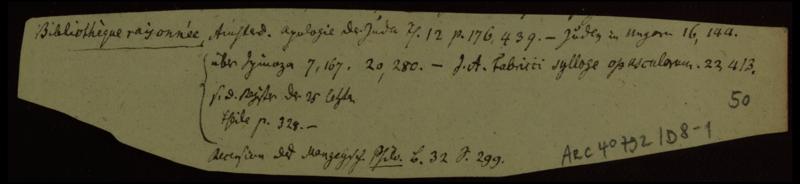 Bibliothèque raisonnée, Amsterd. Apologie der Juden Th. 12 p. 176, 439. — Juden in Ungarn 16, 144.
über Spinoza 7, 167. 20, 280. — J. A. Fabricii sylloge opusculorum. 22, 413.
s. d. Register der 25 letzten
Theile p. 328. —
50
Recension des Philo. B. 32 S. 299.
ARC 40792/D8-1